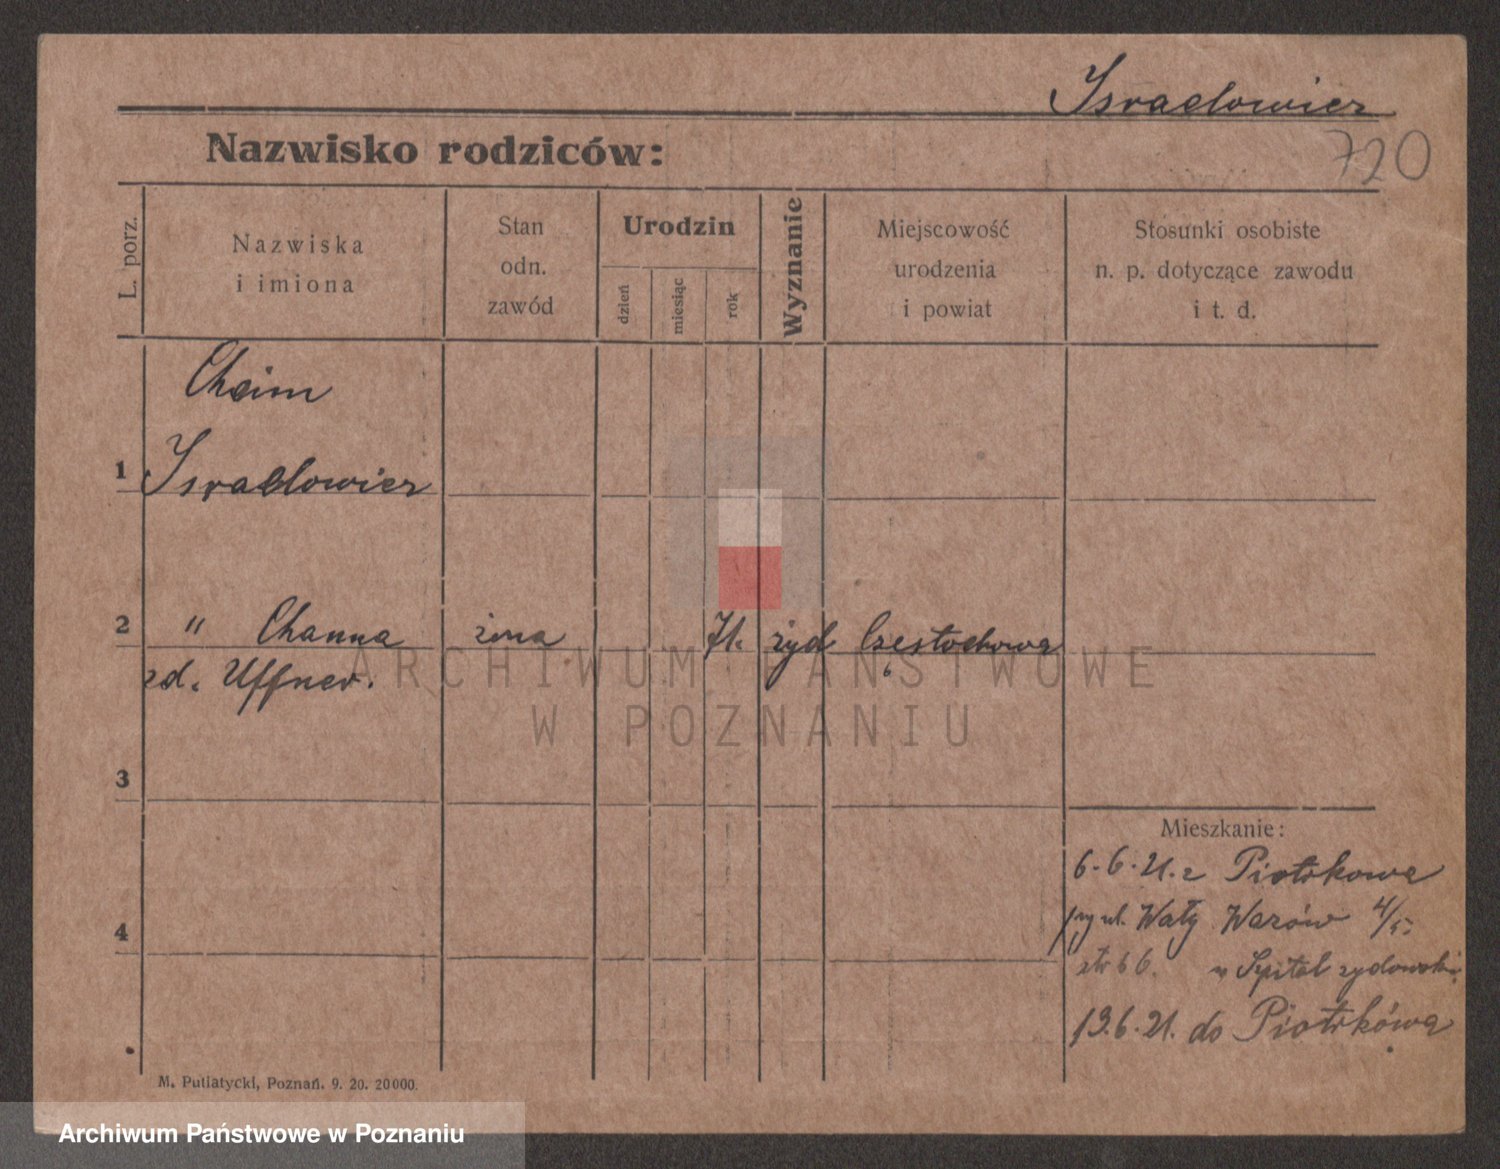 Israelowicz
Nazwisko rodziców:
720
L. porz.
Nazwiska
i imiona
Stan
odn.
zawód
Urodzin
dzień
miesiąc
rok
Wyznanie
Miejscowość
urodzenia
i powiat
Stosunki osobiste
n. p. dotyczące zawodu
i t. d.
Chaim
1 Israelowicz
2 " Channa żona 71. żyd Częstochowa
zd. Uffner.
ARCHIWUM PAŃSTWOWE
W POZNANIU
3
Mieszkanie:
6.6.21. z Piotrkowa
przy ul. Wały Wazów 4/5.
4
w Szpital żydowski
13.6.21. do Piotrkówa
M. Putiatycki, Poznań. 9. 20. 20000.
Archiwum Państwowe w Poznaniu